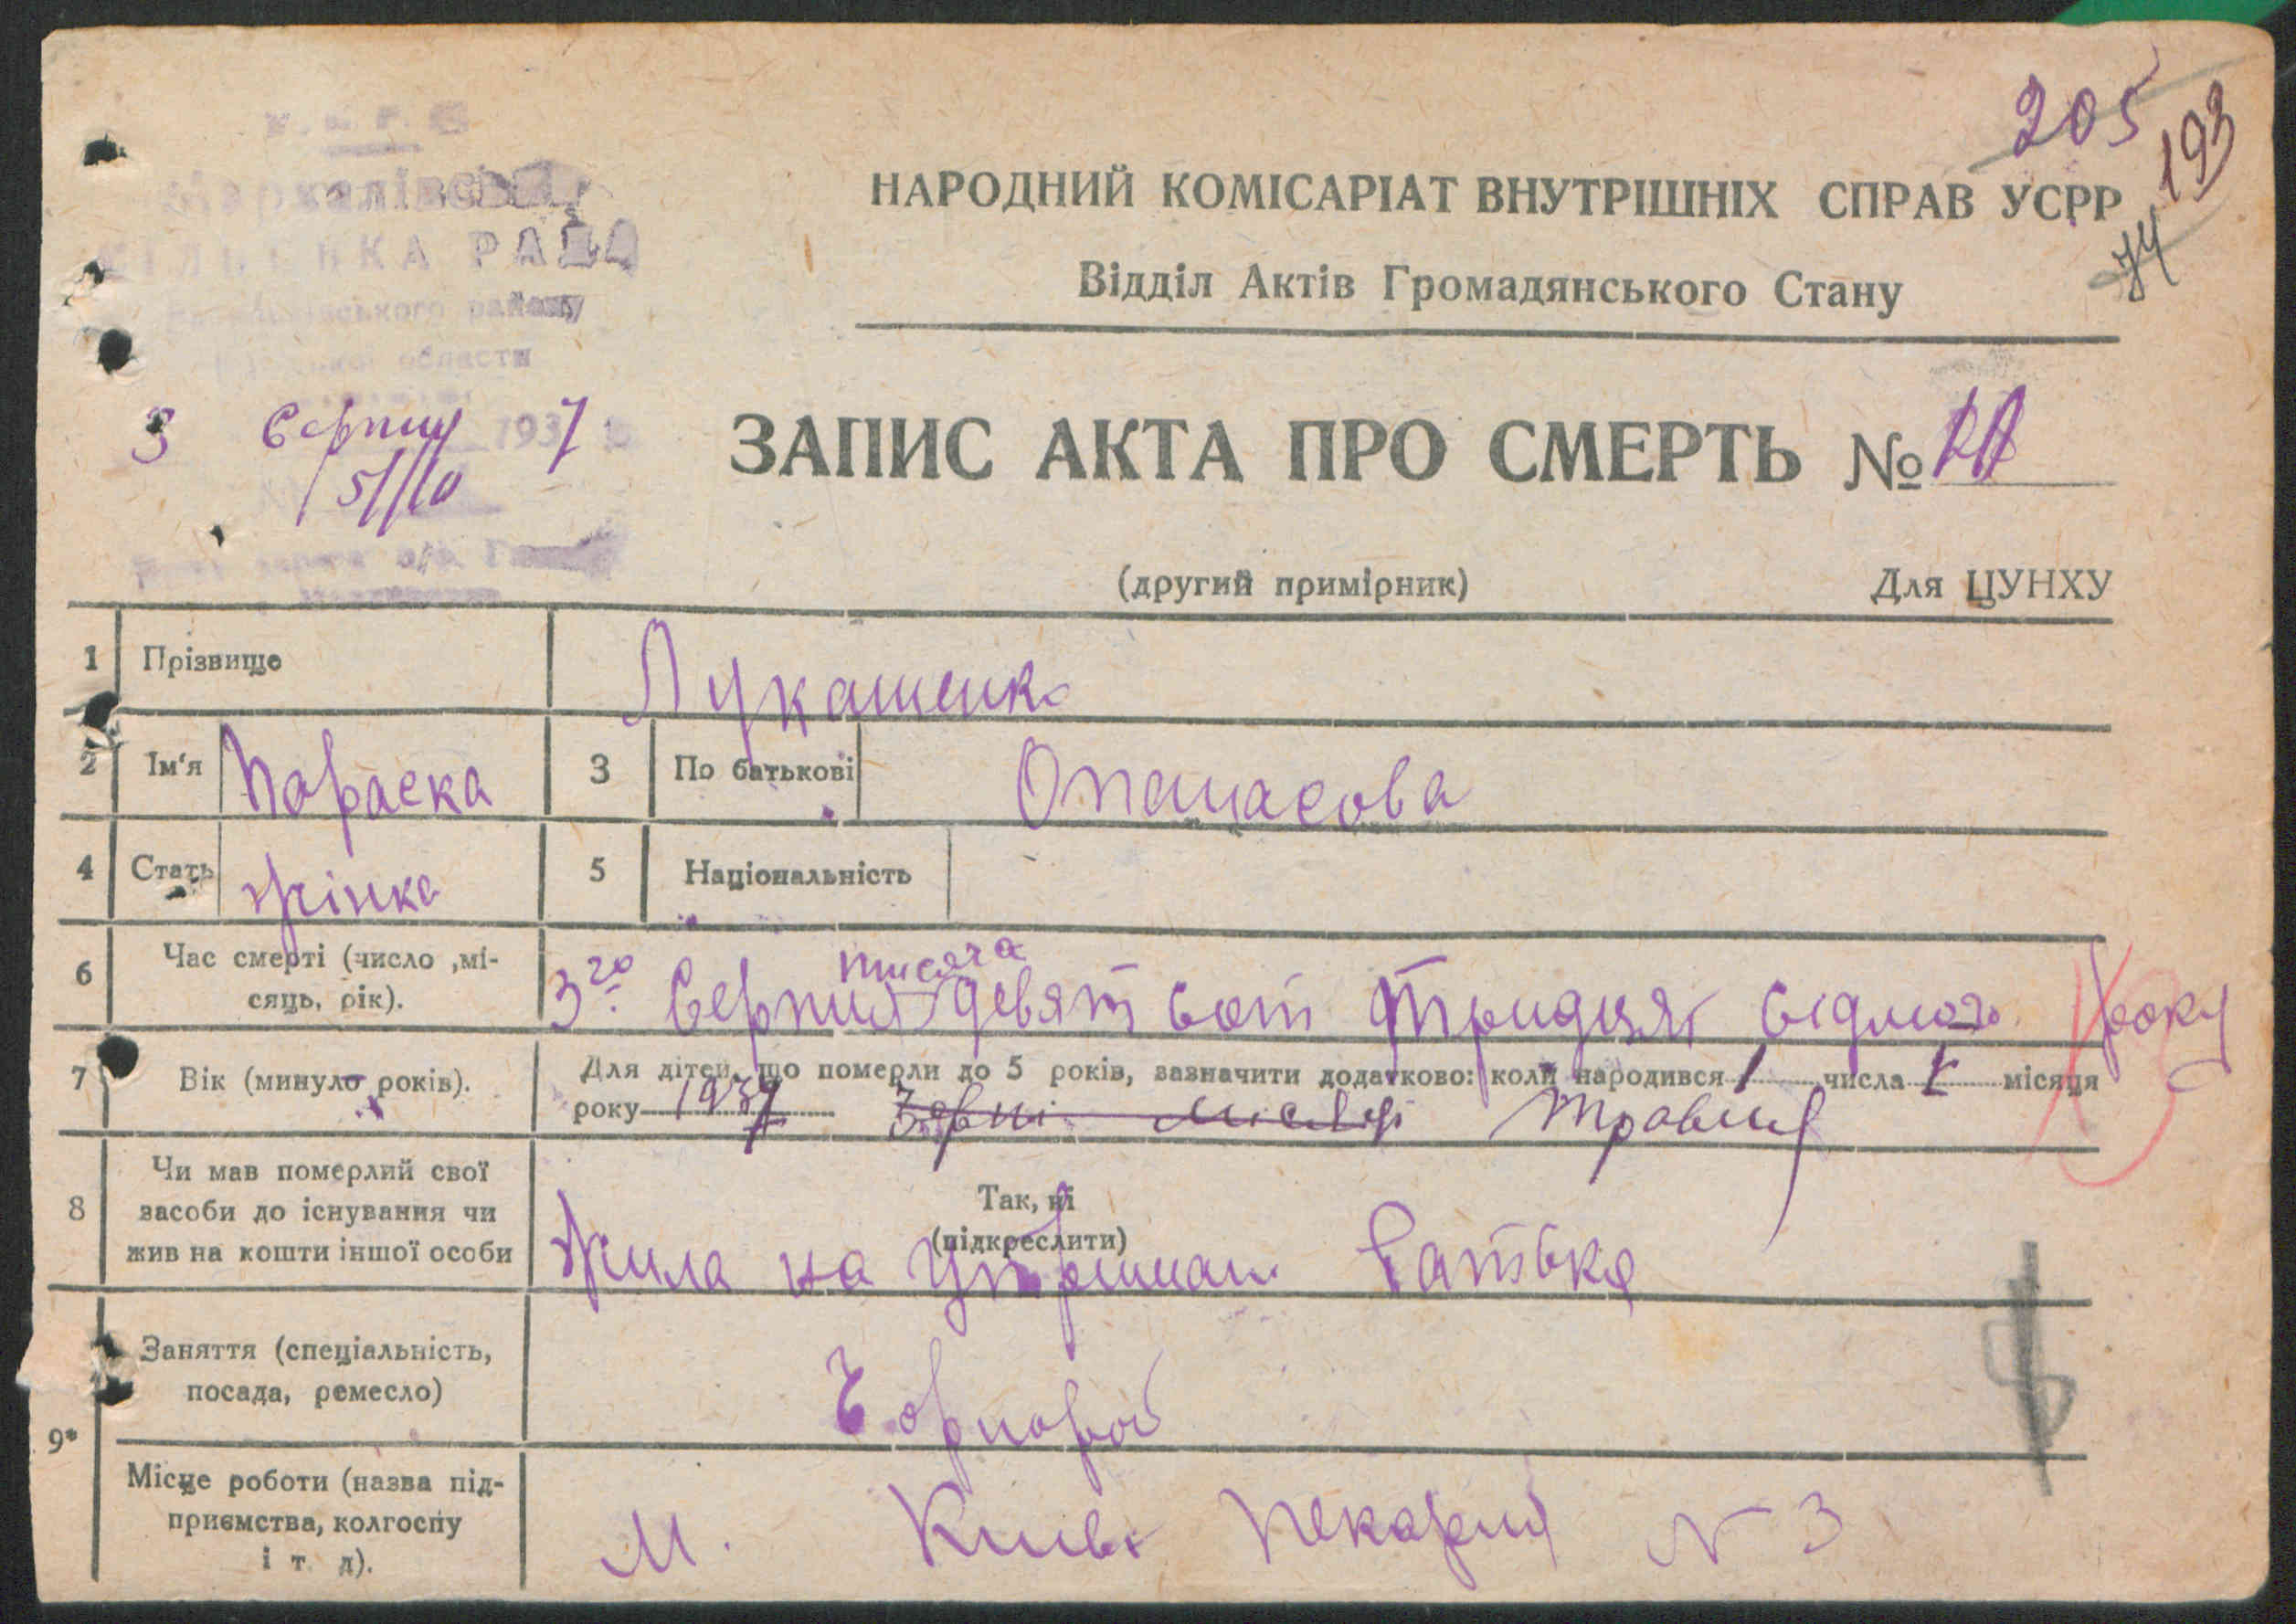 205
193
74
СІЛЬСЬКА РАДА
району
области
3 Серпня 1937
15/10
НАРОДНИЙ КОМІСАРІАТ ВНУТРІШНІХ СПРАВ УСРР
Відділ Актів Громадянського Стану
ЗАПИС АКТА ПРО СМЕРТЬ №
(другий примірник) Для ЦУНХУ
1 Прізвище Лукашенко
2 Ім'я Параска 3 По батькові Опанасова
4 Стать жінка 5 Національність
6 Час смерті (число ,мі-
сяць, рік).
тисяча
3го Серпня девятсот тридцят сідмого року
7 Вік (минуло років).
Для дітей, що померли до 5 років, зазначити додатково: коли народився 1 числа V місяця
року 1937 місяці травня
8 Чи мав померлий свої
засоби до існування чи
жив на кошти іншої особи
Так, ні
(підкреслити)
жила на утриман батька
9* Заняття (спеціальність,
посада, ремесло)
Чорнороб
Місце роботи (назва під-
приємства, колгоспу
і т. д).
М. Київ Пекарня N 3